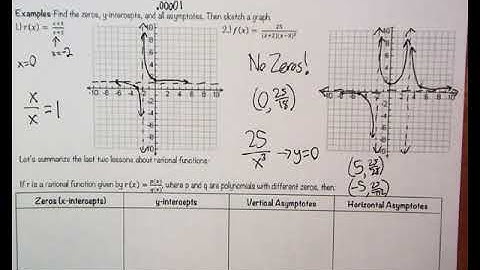 .00001
Examples-Find the zeros, y-intercepts, and all asymptotes. Then sketch a graph.
1.) r(x) =
2.) f(x) = 25/((x+2)(x-3)²)
x=-2
x=0
No Zeros!
(0, 25/18)
x/x = 1
25/x³ → y=0
(5, 25/28)
Let's summarize the last two lessons about rational functions:
If r is a rational function given by r(x) = p(x)/q(x), where p and q are polynomials with different zeros, then:
Zeros (x-intercepts) y-intercepts Vertical Asymptotes Horizontal Asymptotes